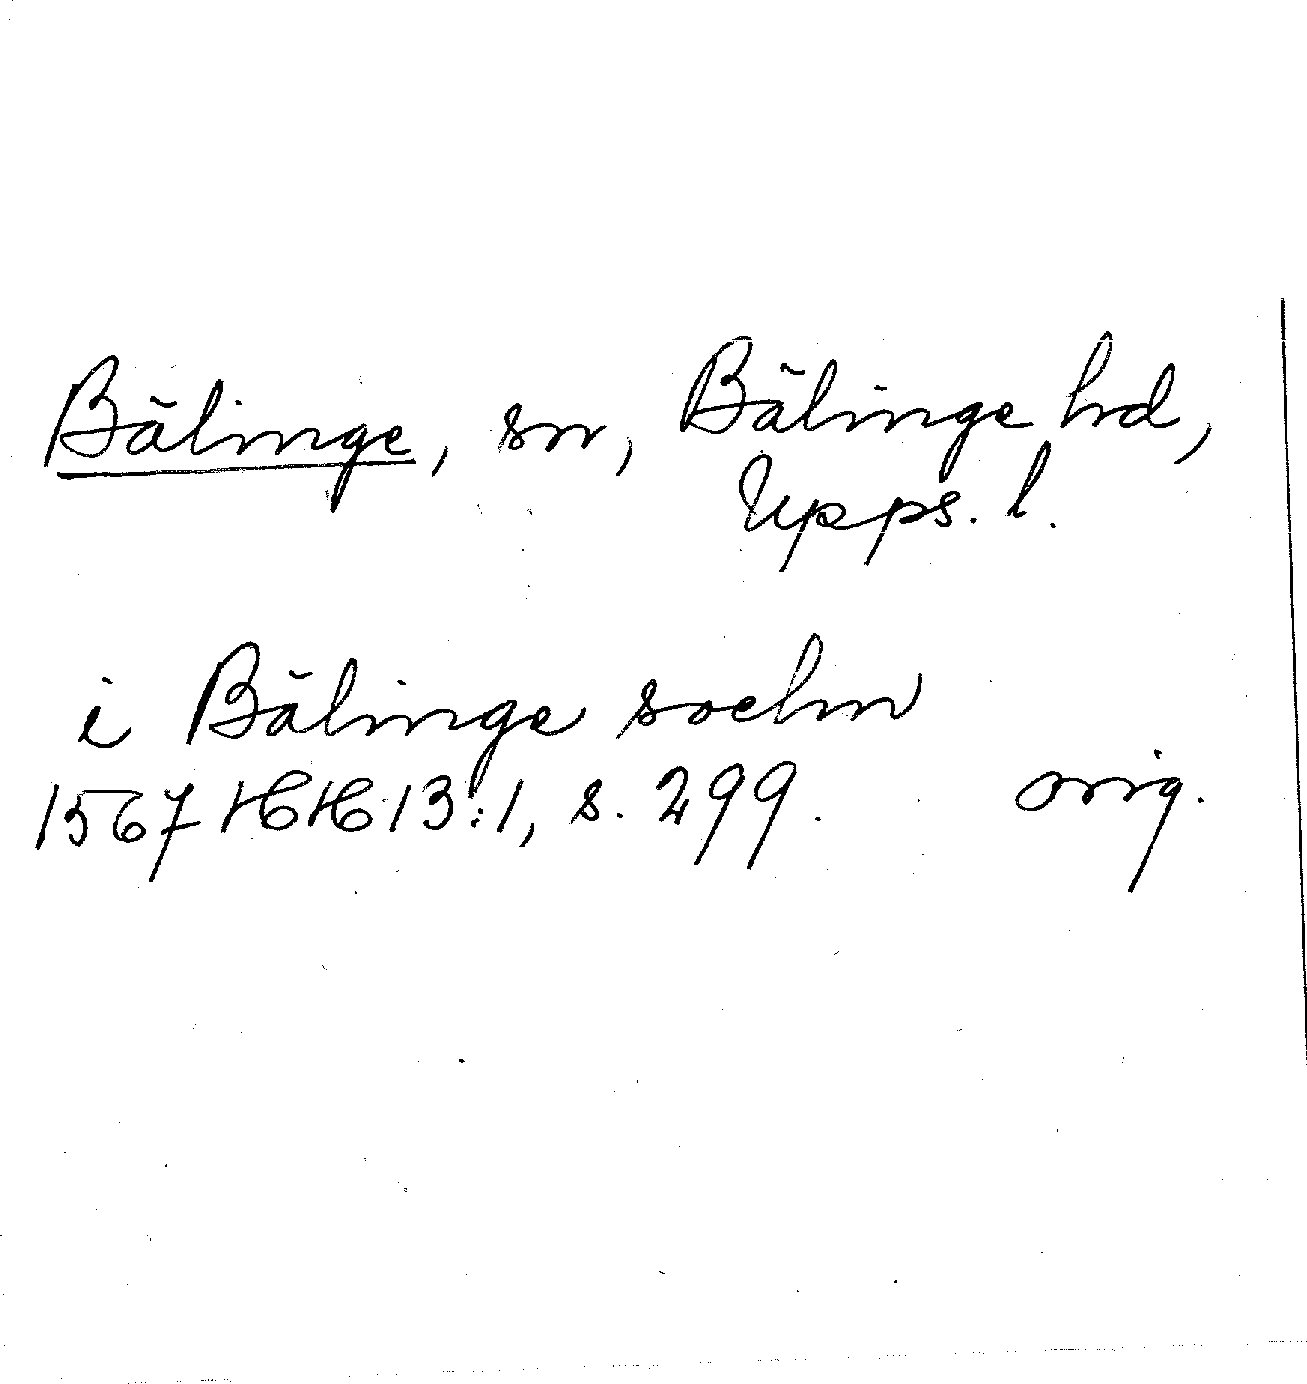 Bälinge, sn, Bälinge hd,
Upps. l.
i Bälinge sochn
1567 HH 13:1, s. 299. orig.